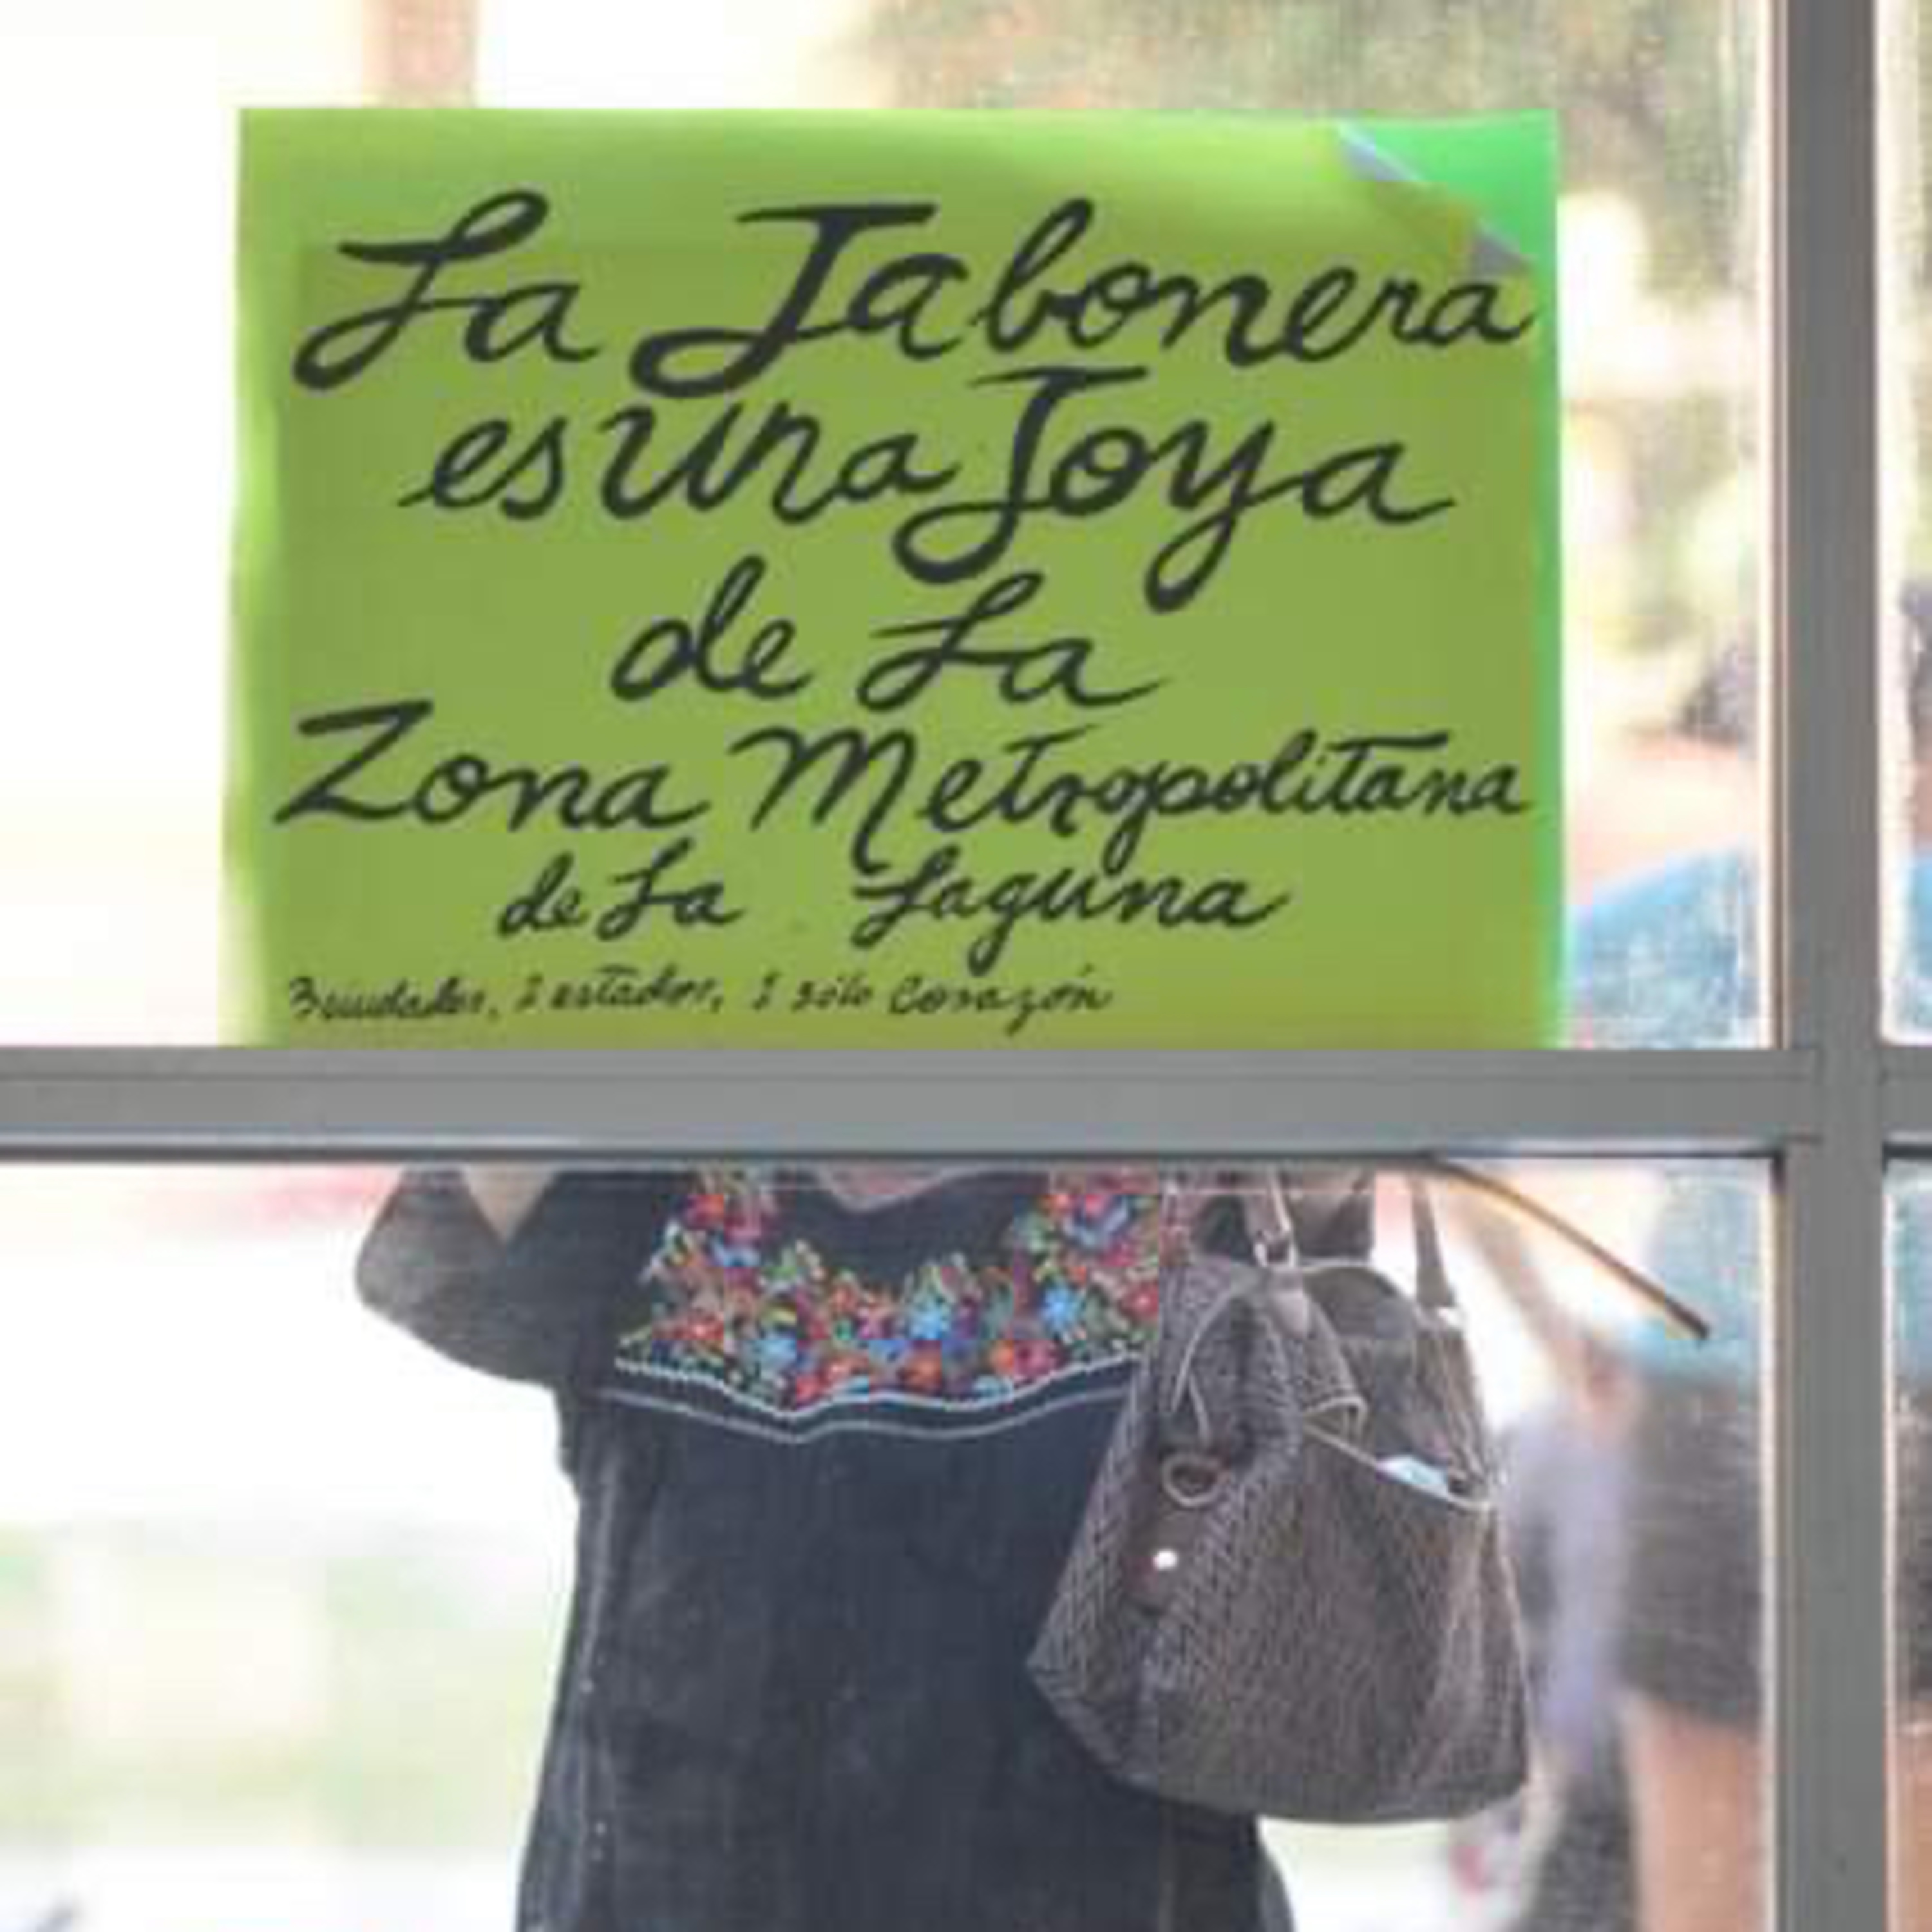 La Jabonera
es una Joya
de La
Zona Metropolitana
de La Laguna
3 ciudades, 2 estados, 1 sólo Corazón